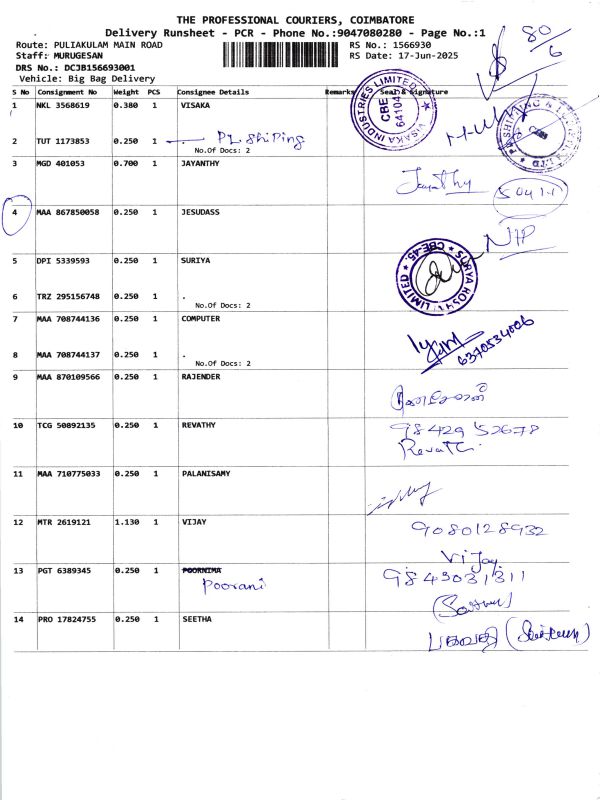 THE PROFESSIONAL COURIERS, COIMBATORE
Delivery Runsheet - PCR - Phone No.:9047080280 - Page No.:1
Route: PULIAKULAM MAIN ROAD RS No.: 1566930
Staff: MURUGESAN RS Date: 17-Jun-2025
DRS No.: DCJB156693001
Vehicle: Big Bag Delivery
80
6
S No Consignment No Weight PCS Consignee Details Remarks Seal & Signature
1 NKL 3568619 0.380 1 VISAKA
VISAKA INDUSTRIES LIMITED
CBE
2 TUT 1173853 0.250 1 PL Shiping
No.Of Docs: 2
3 MGD 401053 0.700 1 JAYANTHY
Jayanthy
4 MAA 867850058 0.250 1 JESUDASS
NIP
5 DPI 5339593 0.250 1 SURIYA
CBE-45.
LIMITED
6 TRZ 295156748 0.250 1 .
No.Of Docs: 2
7 MAA 708744136 0.250 1 COMPUTER
6370534006
8 MAA 708744137 0.250 1 .
No.Of Docs: 2
9 MAA 870109566 0.250 1 RAJENDER
10 TCG 50892135 0.250 1 REVATHY
98429 52678
Revathi
11 MAA 710775033 0.250 1 PALANISAMY
12 MTR 2619121 1.130 1 VIJAY
9080128932
Vijay
13 PGT 6389345 0.250 1 POORNIMA
Poorani
9843031311
14 PRO 17824755 0.250 1 SEETHA